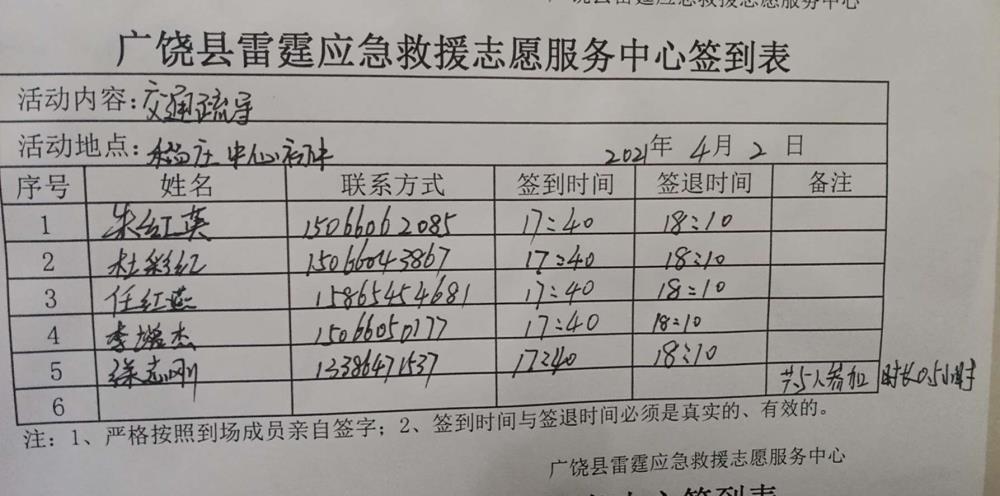 广饶县雷霆应急救援志愿服务中心
广饶县雷霆应急救援志愿服务中心签到表
活动内容：交通疏导
活动地点：稻庄中心初中 2021年 4月 2 日
序号 姓名 联系方式 签到时间 签退时间 备注
1 朱红英 15066062085 17:40 18:10
2 杜彩红 15066043867 17:40 18:10
3 任红燕 15865454681 17:40 18:10
4 李增杰 15066050177 17:40 18:10
5 徐志刚 13386471537 17:40 18:10 共5人参加 时长0.5小时
6
注：1、严格按照到场成员亲自签字；2、签到时间与签退时间必须是真实的、有效的。
广饶县雷霆应急救援志愿服务中心
心签到表